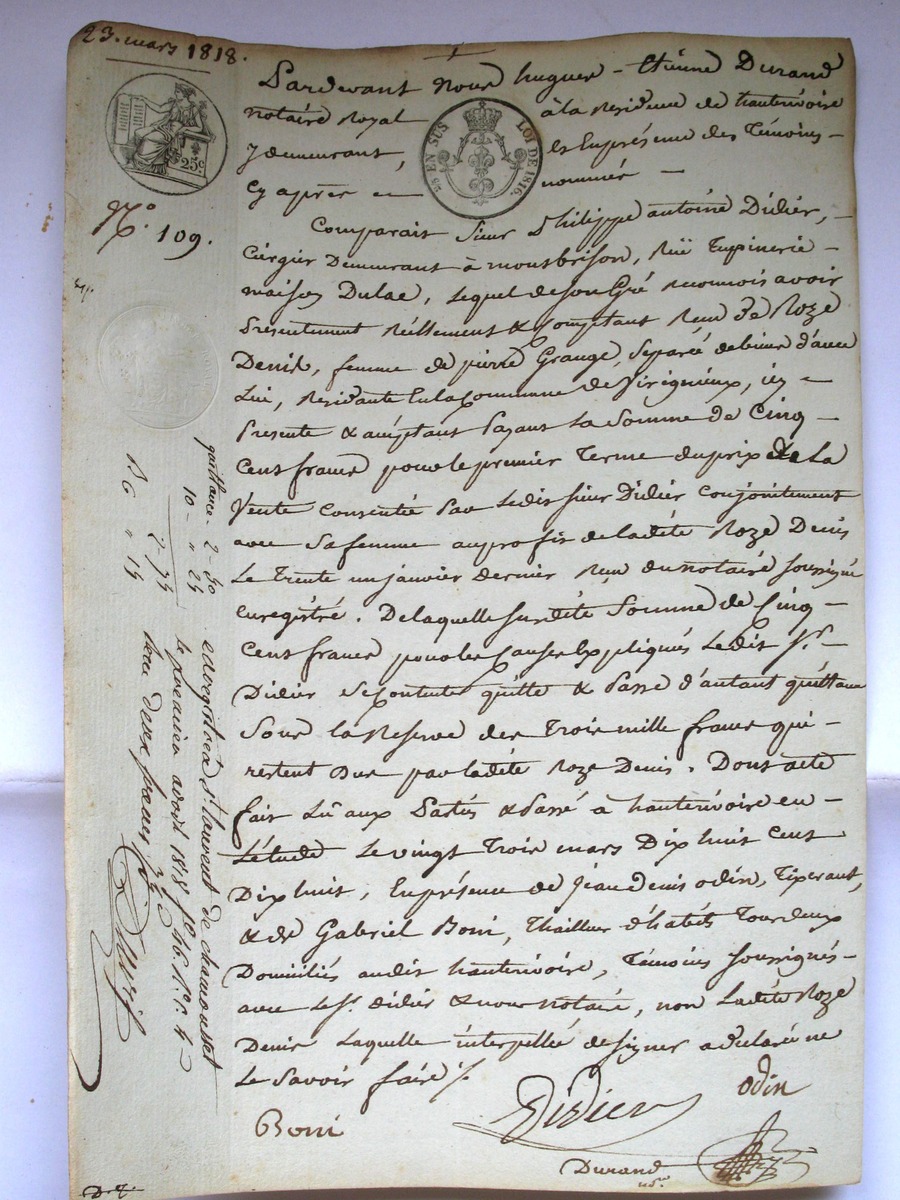 23. mars 1818.
25 c.
25 EN SUS
LOI DE 1816.
N.o 109.
Pardevant Nous hugues - Etiénne Durand
notaire Royal à la Residence de hautenivoire
y demeurant, et En présence des Témoins -
Cy après nommés -
Comparait Sieur Philippe antoine Didier,
Ciergier Demeurant à montbrison, Ruë Tupinerie -
maison Dulac, Lequel de son Gré reconnois avoir
Présentement Réellement & Comptant Reçu De Roze
Denis, femme de pierre Grange, Séparée de biens d'avec
Lui, Residante En la Commune de Virigneux, icy -
Présente & acceptant Payant La Somme de Cinq -
Cent francs pour le premier Terme du prix de La
Vente Consentie Par Ledit sieur Didier Conjointement
avec Sa femme au profit de Ladite Roze Denis
Le Trente un janvier dernier Reçu du notaire soussigné
Enregistré. De laquelle susdite Somme de Cinq -
Cent francs pour les Causes Expliqués Ledit S.r -
Didier Se Contente quitte & Passe d'autant quittance
Sous La Reserve des Trois mille francs qui -
restent Dus par Ladite Roze Denis. Dont acte
fait Lû aux Parties & Passé à hautenivoire en -
L'étude Le vingt Trois mars Dix huit Cent
Dix huit, En présence de jean denis odin, Tixerant,
& de Gabriel Boni, Thailleur d'habits Tous deux
Domiciliés audit hautenivoire, Témoins soussignés -
avec Le S.r didier & nous notaire, non Ladite Roze
Denis Laquelle interpellée de signer a déclaré ne
Le Savoir faire /.
Boni
Didier
odin
Durand
quittance - 2 - 50
10 - " 25
2 75
B C " 15
enregistré à St. laurent de chamousset
le premier avril 1818 f.o 46. r.o c. 4
Reçu deux francs